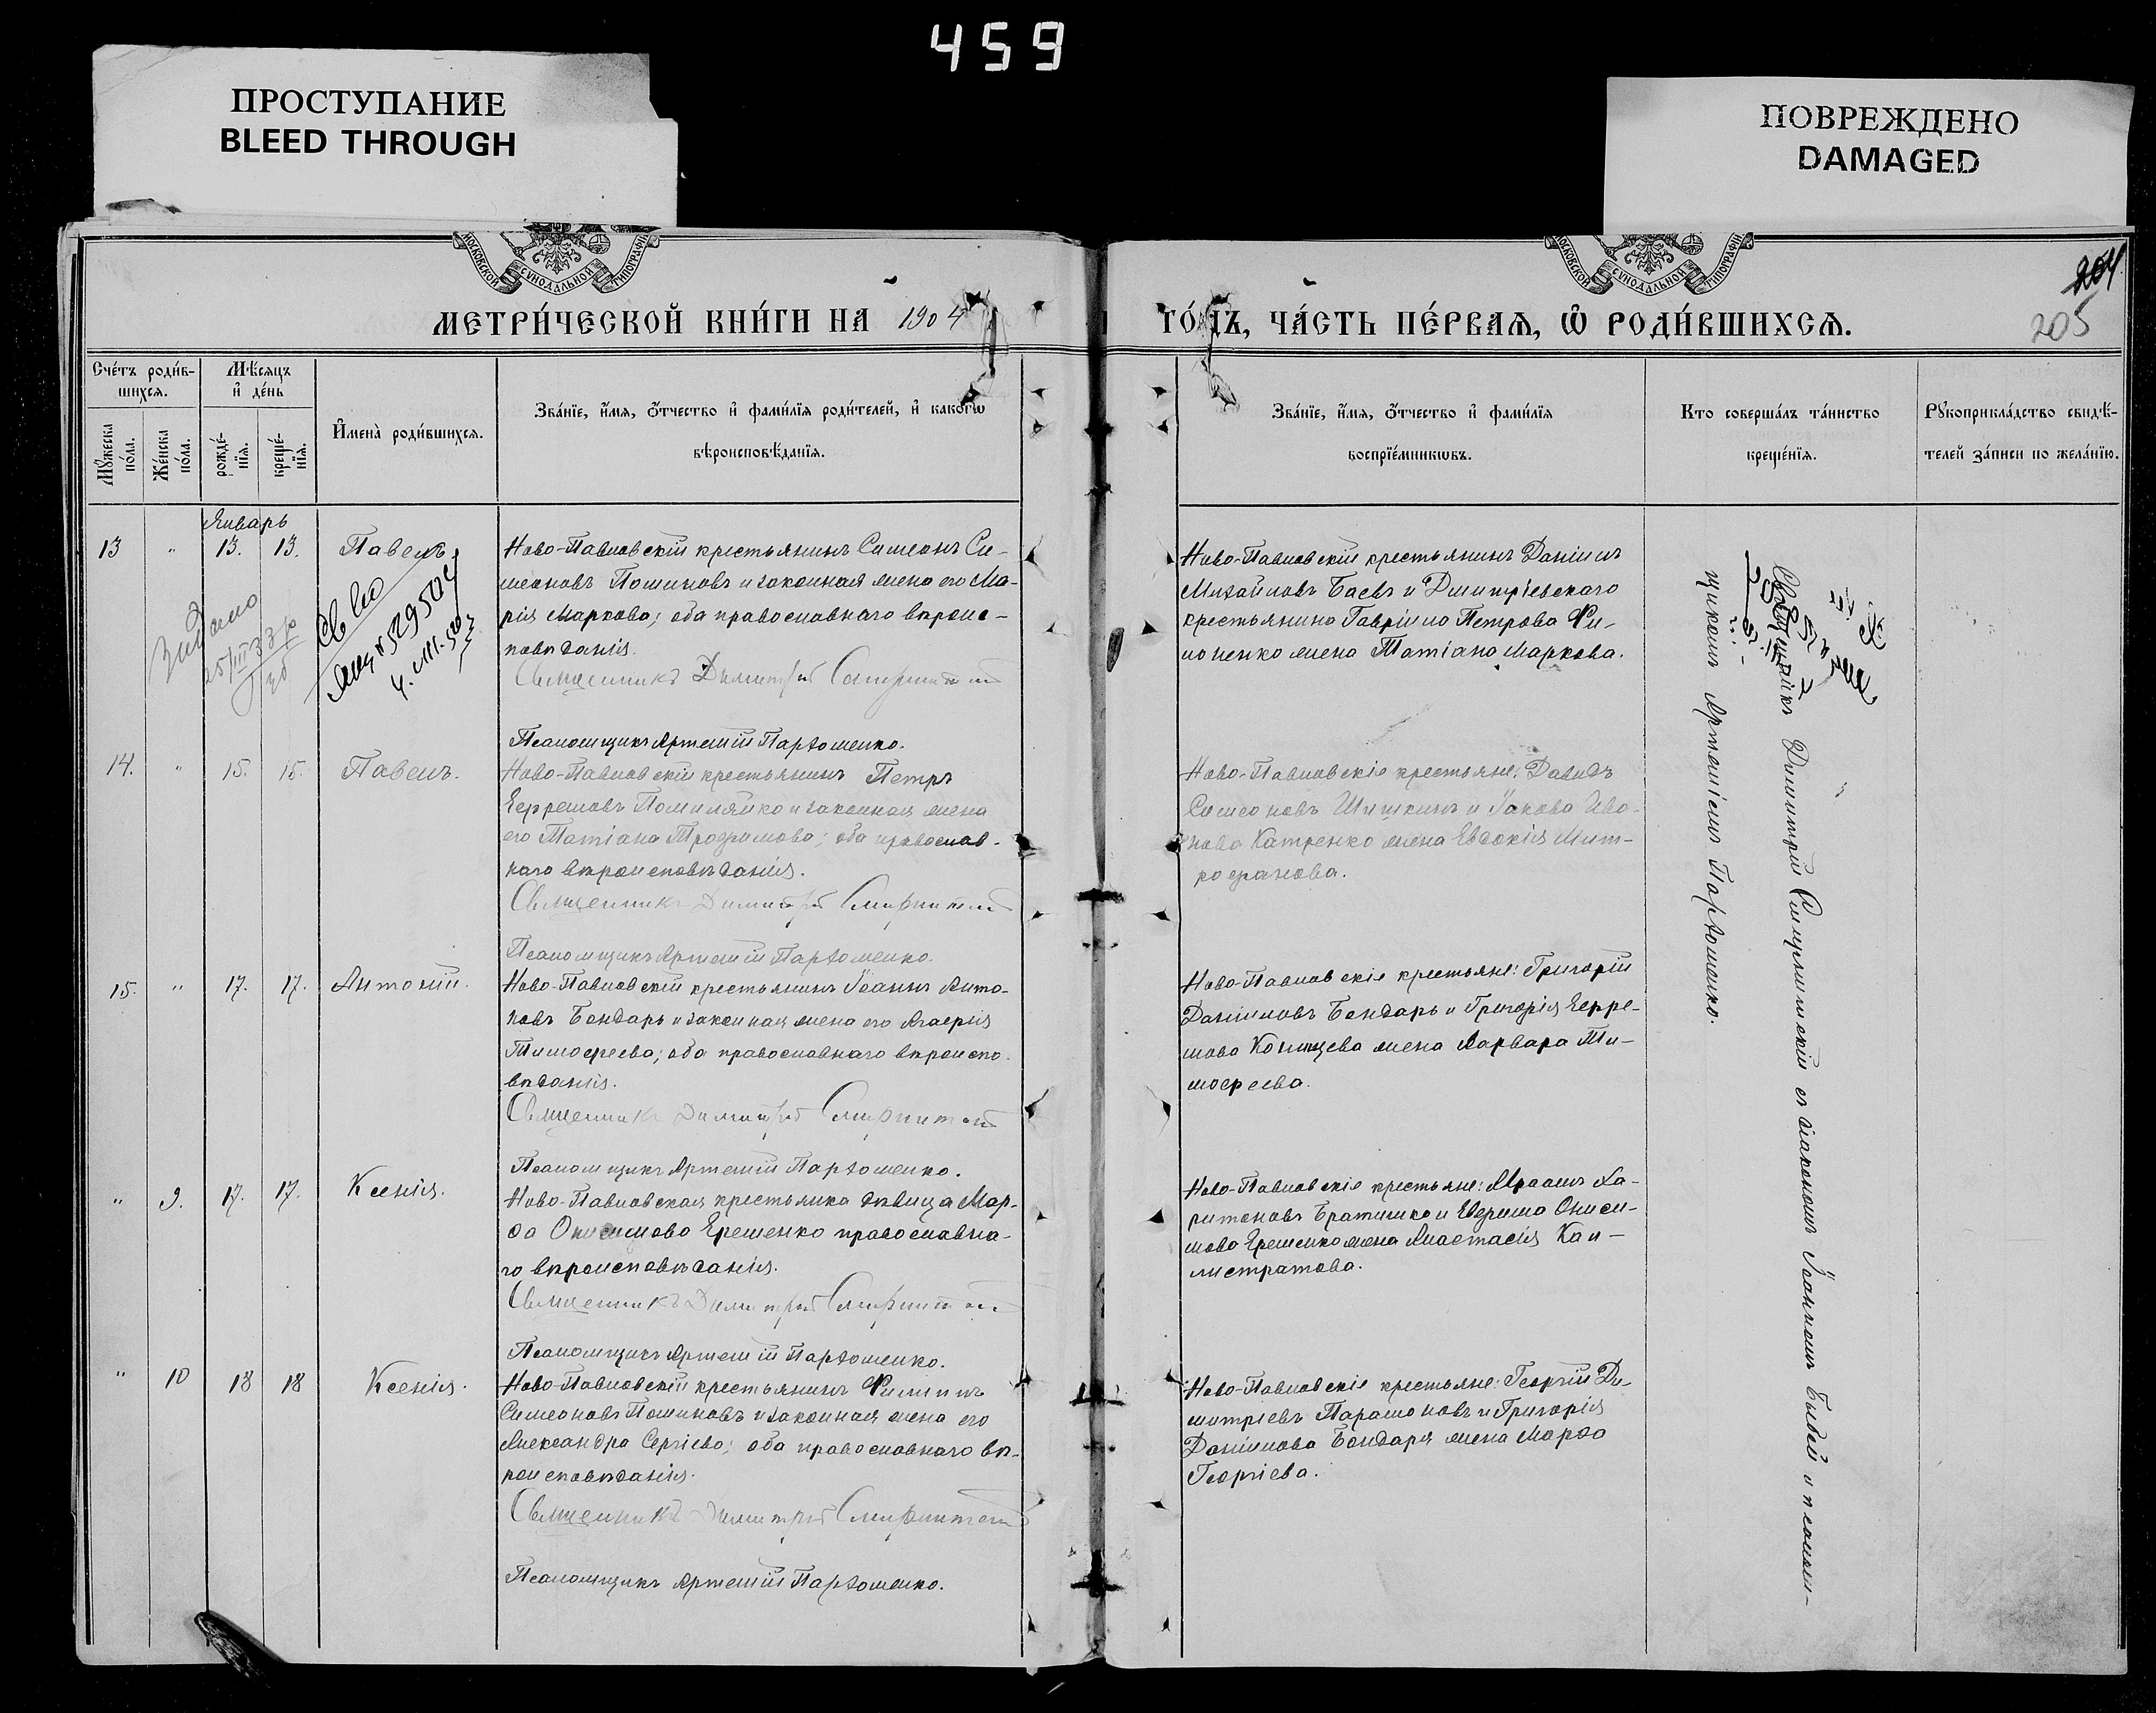 459
ПРОСТУПАНИЕ
BLEED THROUGH
ПОВРЕЖДЕНО
DAMAGED
МОСКОВСКОЙ СѴНОДАЛЬНОЙ ТИПОГРАФІИ
МОСКОВСКОЙ СѴНОДАЛЬНОЙ ТИПОГРАФІИ
204
205
МЕТРИ́ЧЕСКОЙ КНИ́ГИ НА 1904
ГО́ДЪ, ЧА́СТЬ ПЕ́РВАЯ, Ѡ҆ РОДИ́ВШИХСЯ.
Сче́тъ роди́в-
шихся.
Мѣ́сяцъ
и҆ де́нь
Мꙋ́жеска
по́ла.
Же́нска
по́ла.
рожде́-
нїя.
креще́-
нїя.
И҆мена̀ роди́вшихся.
Зва́нїе, и҆́мя, ѻ҆́тчество и҆ фами́лїя роди́телей, и҆ како́гѡ
вѣроисповѣ́данїя.
Зва́нїе, и҆́мя, ѻ҆́тчество и҆ фами́лїя
воспрїе́мникѡвъ.
Кто соверша́лъ та́инство
креще́нїя.
Рꙋкоприкла́дство свидѣ́-
телей за́писи по жела́нїю.
Январь
13 " 13. 13. Павелъ.
Ново-Павловскій крестьянинъ Симеонъ Си-
меоновъ Логиновъ и законная жена его Ма-
рія Маркова; оба православнаго вѣроис-
повѣданія.
Священникъ Димитрій
Псаломщикъ Артемій Пархоменко.
Ново-Павловскій крестьянинъ Даніилъ
Михайловъ Баевъ и Дмитріевскаго
крестьянина Гавріила Петрова Фи-
ионенко жена Татіана Маркова.
Выдано
529504
14. " 15. 15. Павелъ.
Ново-Павловскій крестьянинъ Петръ
Ефремовъ и законная жена
его Татіана Трофимова; оба православ-
наго вѣроисповѣданія.
Священникъ Димитрій
Псаломщикъ Артемій Пархоменко.
Ново-Павловскіе крестьяне: Давидъ
Симеоновъ Шишкинъ и Іакова Ива-
нова Катренко жена Евдокія Мит-
рофанова.
15. " 17. 17. Антоній.
Ново-Павловскій крестьянинъ Іоаннъ Анто-
новъ Бондарь и законная жена его Агафія
Тимофеева; оба православнаго вѣроиспо-
вѣданія.
Священникъ Димитрій
Псаломщикъ Артемій Пархоменко.
Ново-Павловскіе крестьяне: Григорій
Даніиловъ Бондарь и Григорія Ефре-
мова жена Варвара Ти-
мофеева.
" 9. 17. 17. Ксенія.
Ново-Павловская крестьянка дѣвица Мар-
ѳа Онисимова Ерешенко православна-
го вѣроисповѣданія.
Священникъ Димитрій
Псаломщикъ Артемій Пархоменко.
Ново-Павловскіе крестьяне: Ха-
ритоновъ и Ефрема Ониси-
мова Ерешенко жена Анастасія Кал-
листратова.
" 10 18 18 Ксенія.
Ново-Павловскій крестьянинъ Филиппъ
Симеоновъ Логиновъ и законная жена его
Александра Сергіева; оба православнаго вѣ-
роисповѣданія.
Священникъ Димитрій
Псаломщикъ Артемій Пархоменко.
Ново-Павловскіе крестьяне: Георгій Ди-
митріевъ Парамоновъ и Григорія
Даніилова Бондаря жена Марѳа
Георгіева.
Священникъ Димитрій съ діакономъ Іоанномъ и псалом-
щикомъ Артеміемъ Пархоменко.